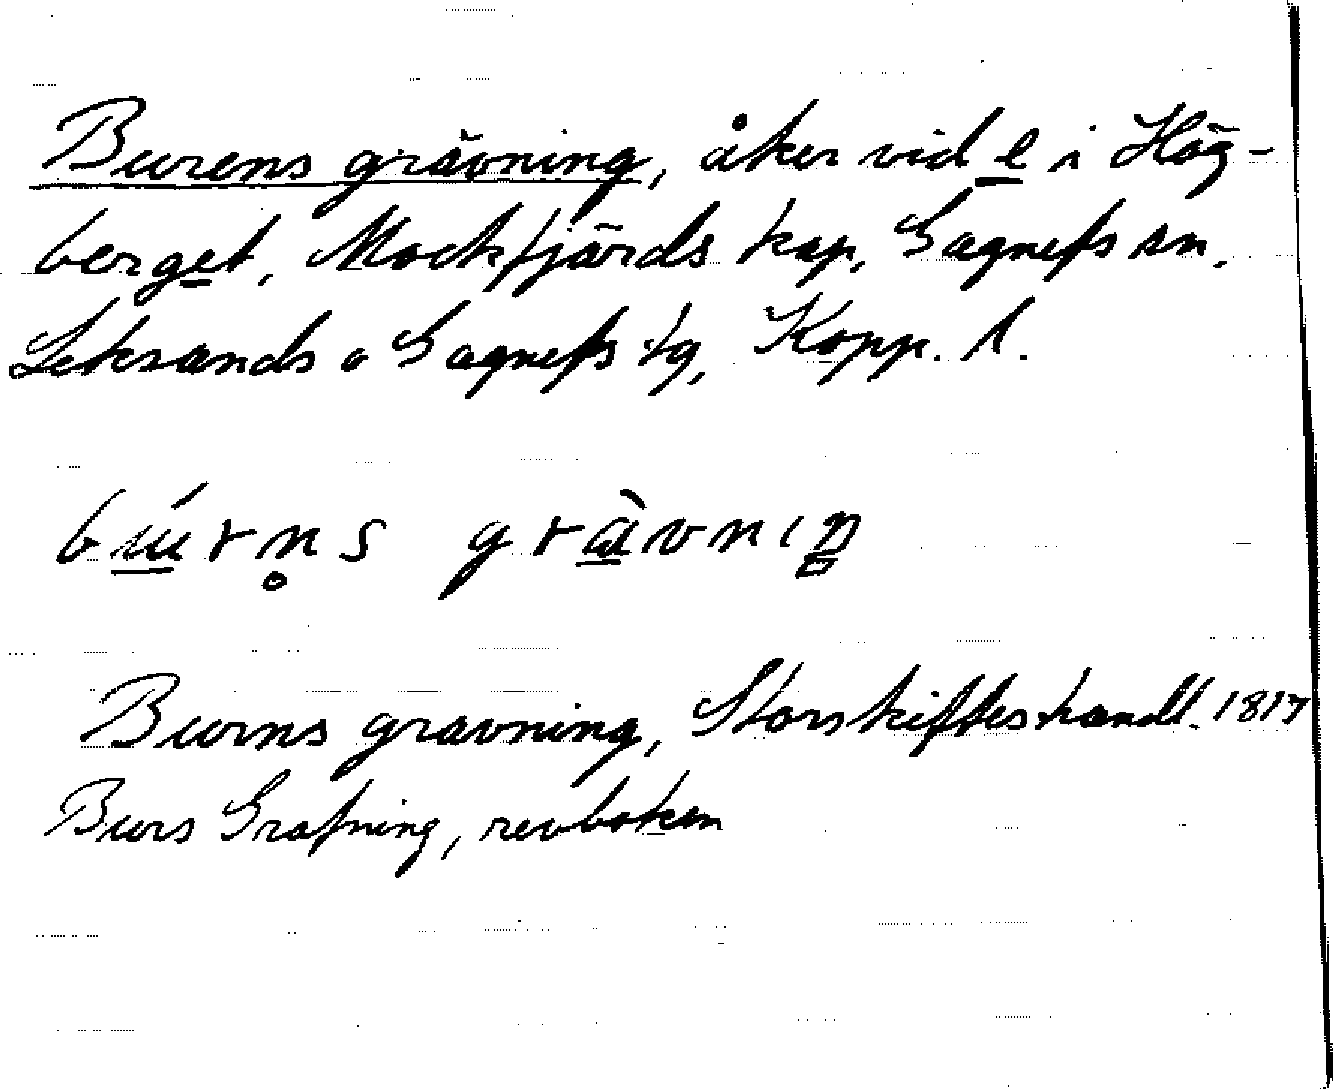 Burens grävning, åker vid e i Hög-
berget, Mockfjärds kap, Gagnefs sn,
Leksands o Gagnefs tg, Kopp. l.
bú̲rn̥s grà̲vnıŋ
Burns grävning, Storskifteshandl. 1817
Burs Grafning, revboken